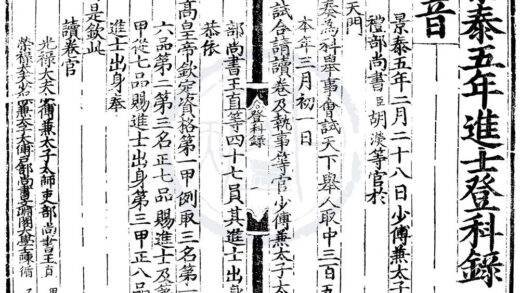 景泰五年進士登科錄
音
景泰五年二月二十八日少傅兼太子
禮部尚書臣胡濙等官於
天門
奏為科舉事會試天下舉人取中三百五
本年三月初一日
試合請讀卷及執事等官少傅兼太子太
部尚書王直等四十七員其進士出身
恭依
登科錄
高皇帝欽定資格第一甲例取三名第一
六品第二第三名正七品賜進士及第
甲從七品賜進士出身第三甲正八品
進士出身奉
是欽此
讀卷官
光祿大夫少傅兼太子太師吏部尚書王直